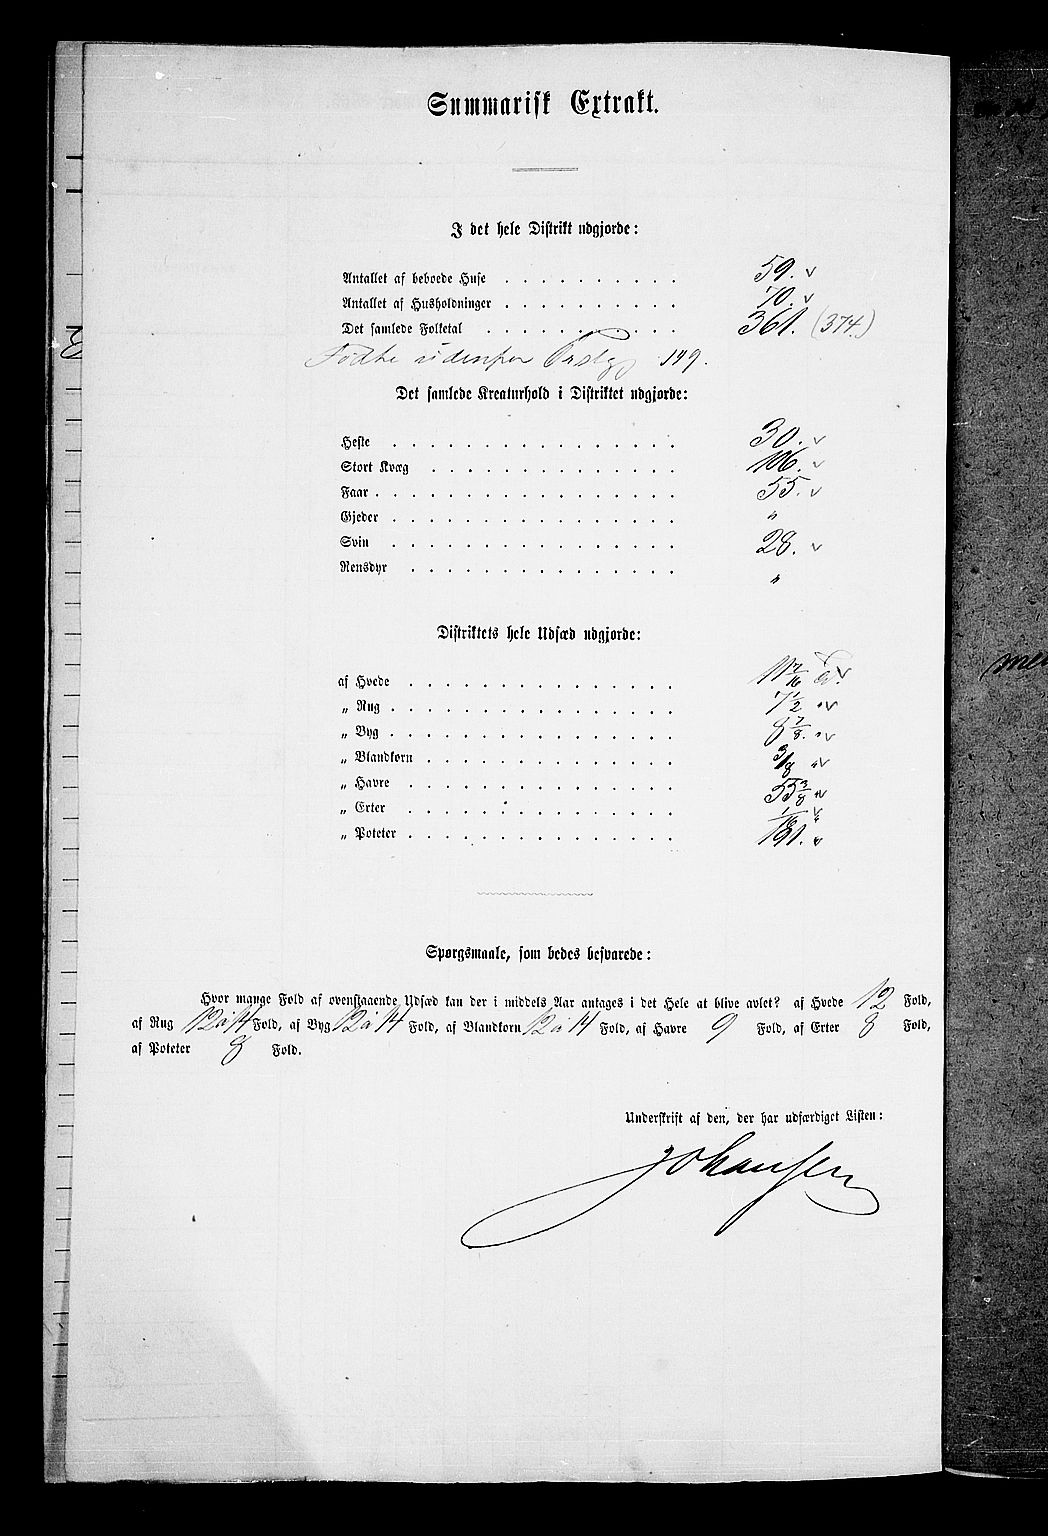 Summarisk Extrakt.
I det hele Distrikt udgjorde:
Antallet af beboede Huse . . . . . . . . . . 59. v
Antallet af Husholdninger . . . . . . . . . . 70. v
Det samlede Folketal . . . . . . . . . . . 361. (374.)
Fødte udenfor 149.
Det samlede Kreaturhold i Distriktet udgjorde:
Heste . . . . . . . . . . . . . . . . 30. v
Stort Kvæg . . . . . . . . . . . . . . 106. v
Faar . . . . . . . . . . . . . . . . . 55. v
Gjeder . . . . . . . . . . . . . . . . "
Svin . . . . . . . . . . . . . . . . 28. v
Rensdyr . . . . . . . . . . . . . . . "
Distriktets hele Udsæd udgjorde:
af Hvede . . . . . . . . . . . . . . . 11 7/16
„ Rug . . . . . . . . . . . . . . . . 7 1/2 " v
„ Byg . . . . . . . . . . . . . . . . 8 7/8. " v
„ Blandkorn . . . . . . . . . . . . . . 3/8 " v
„ Havre . . . . . . . . . . . . . . . 55 3/8 " v
„ Erter . . . . . . . . . . . . . . .
„ Poteter . . . . . . . . . . . . . . .
Spørgsmaale, som bedes besvarede:
Hvor mange Fold af ovenstaaende Udsæd kan der i middels Aar antages i det Hele at blive avlet? af Hvede 12 Fold,
af Rug 12 à 14 Fold, af Byg 12 à 14 Fold, af Blandkorn 12 à 14 Fold, af Havre 9 Fold, af Erter 8 Fold,
af Poteter 8 Fold.
Underskrift af den, der har udfærdiget Listen:
Johansen